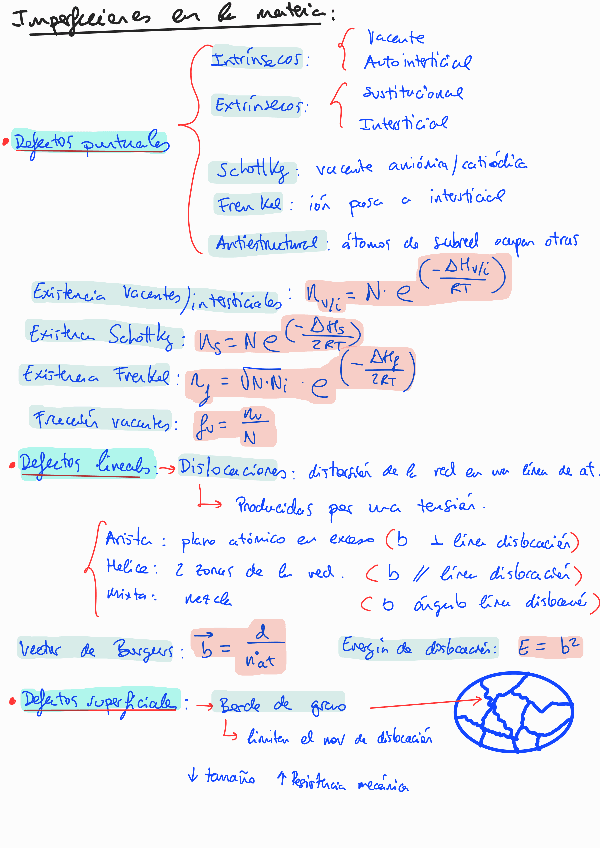 Imperfecciones en la materia:
Intrínsecos: Vacante
Autointersticial
Extrínsecos: Sustitucional
Intersticial
• Defectos puntuales
Schottky: vacante aniónica/catiónica
Frenkel: ión pasa a intersticial
Antiestructural: átomos de subred ocupan otras
Existencia vacantes/intersticiales: n_v/i = N · e^(-ΔH_v/i / RT)
Existencia Schottky: n_s = N e^(-ΔH_s / 2RT)
Existencia Frenkel: n_f = √N·N_i · e^(-ΔH_f / 2RT)
Fracción vacantes: f_v = n_v / N
• Defectos lineales: → Dislocaciones: distorsión de la red en una línea de at.
↳ Producidas por una tensión.
Arista: plano atómico en exceso (b ⊥ línea dislocación)
Helice: 2 zonas de la red. (b // línea dislocación)
Mixta: mezcla (b ángulo línea dislocació)
Vector de Burgers: b = d / nºat Energía de dislocación: E = b²
• Defectos superficiales: → Borde de grano
↳ limitan el mov de dislocación
↓ tamaño ↑ Resistencia mecánica